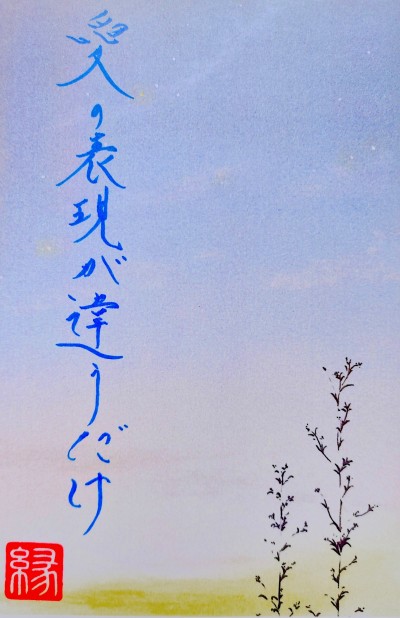 愛の表現が違うだけ
縁